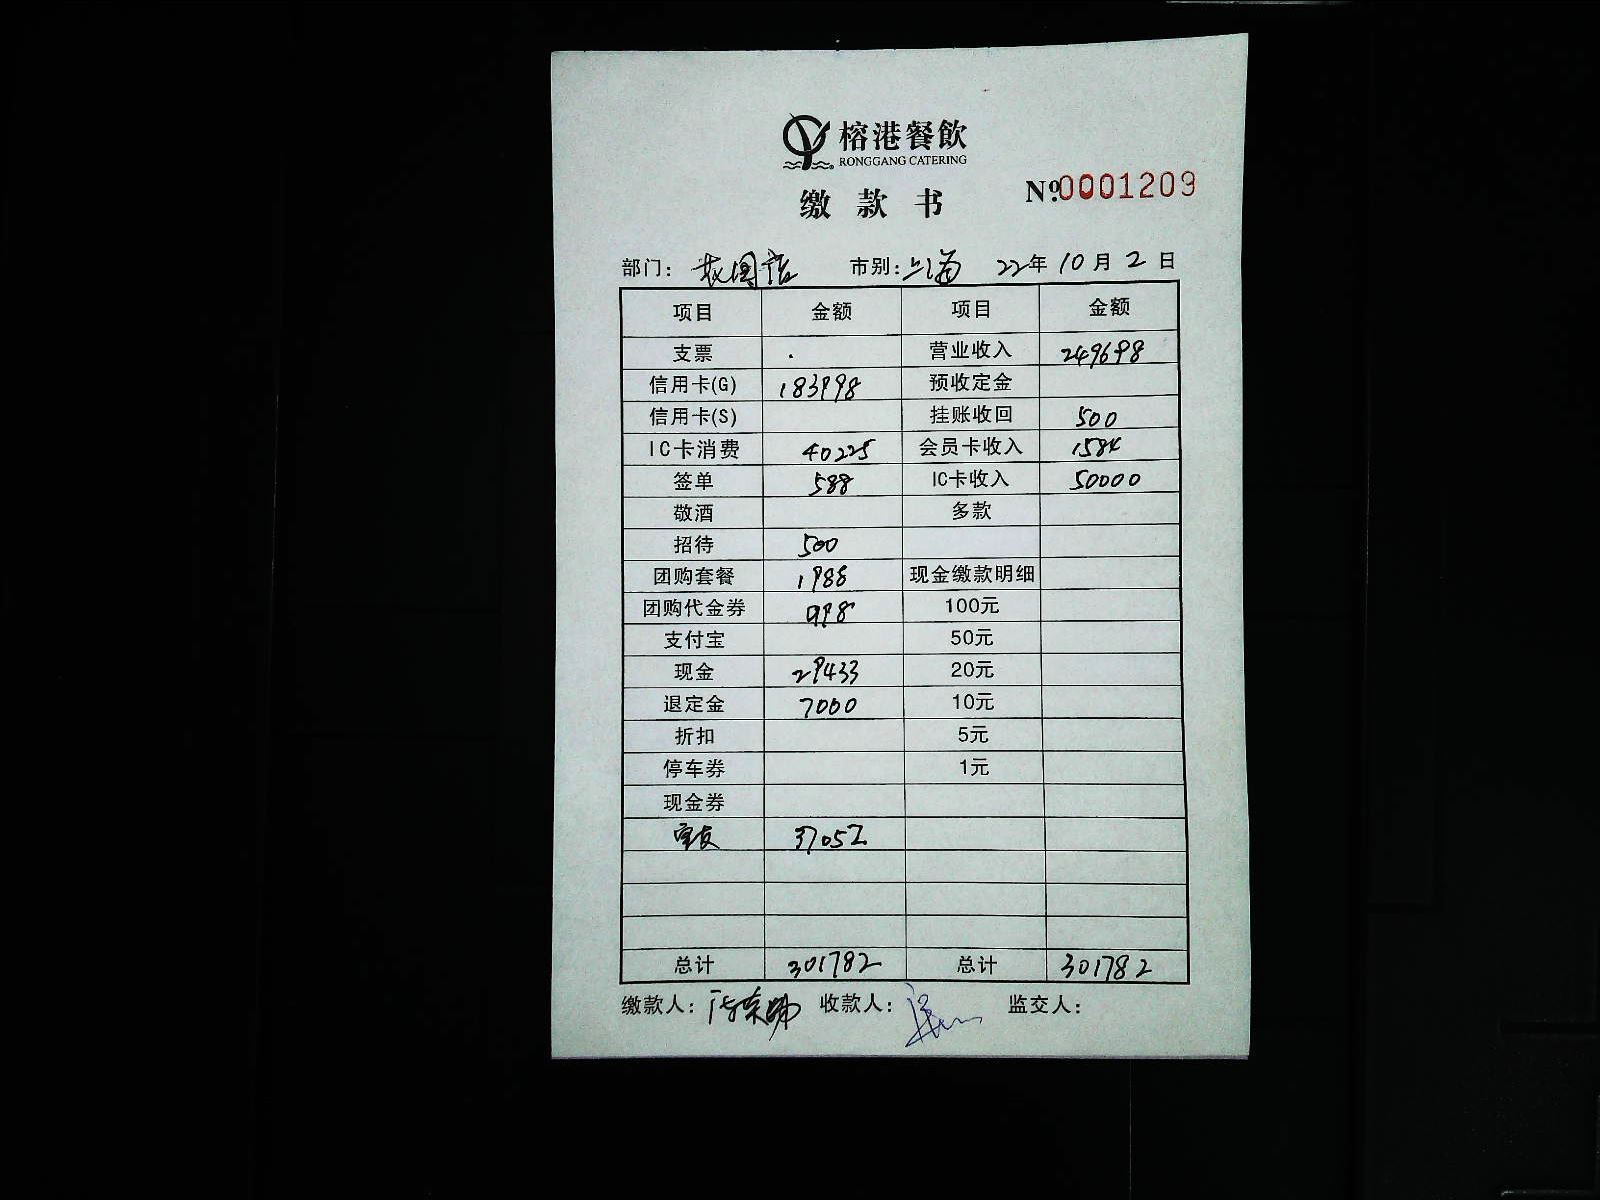 榕港餐飲
RONGGANG CATERING
缴款书
№0001209
部门： 市别：上海 22年10月2日
项目 金额 项目 金额
支票 营业收入 249698
信用卡(G) 183998 预收定金
信用卡(S) 挂账收回 500
IC卡消费 40225 会员卡收入 1584
签单 588 IC卡收入 50000
敬酒 多款
招待 500
团购套餐 1988 现金缴款明细
团购代金券 998 100元
支付宝 50元
现金 29433 20元
退定金 7000 10元
折扣 5元
停车券 1元
现金券
37052
总计 301782 总计 301782
缴款人： 收款人： 监交人：